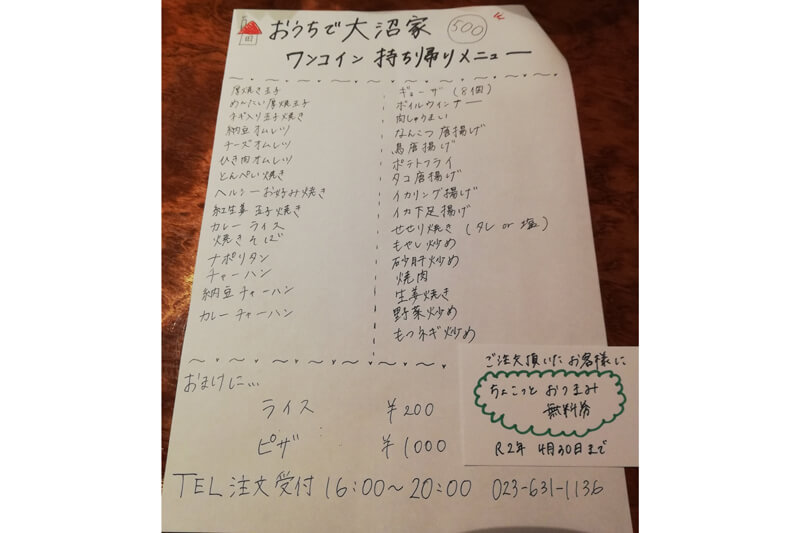 おうちで大沼家 500
ワンコイン 持ち帰りメニュー
厚焼き玉子
めんたい厚焼玉子
ネギ入り玉子焼き
納豆オムレツ
チーズオムレツ
ひき肉オムレツ
とんぺい焼き
ヘルシーお好み焼き
紅生姜 玉子焼き
カレーライス
焼きそば
ナポリタン
チャーハン
納豆チャーハン
カレーチャーハン
ギョーザ(8個)
ボイルウィンナー
肉しゅうまい
なんこつ唐揚げ
鳥唐揚げ
ポテトフライ
タコ唐揚げ
イカリング揚げ
イカ下足揚げ
せせり焼き(タレ or 塩)
もやし炒め
砂肝炒め
焼肉
生姜焼き
野菜炒め
もつネギ炒め
おまけに…
ライス ¥200
ピザ ¥1000
TEL注文受付 16:00〜20:00 023-631-1136
ご注文頂いたお客様に
ちょこっと おつまみ
無料券
R2年 4月30日まで